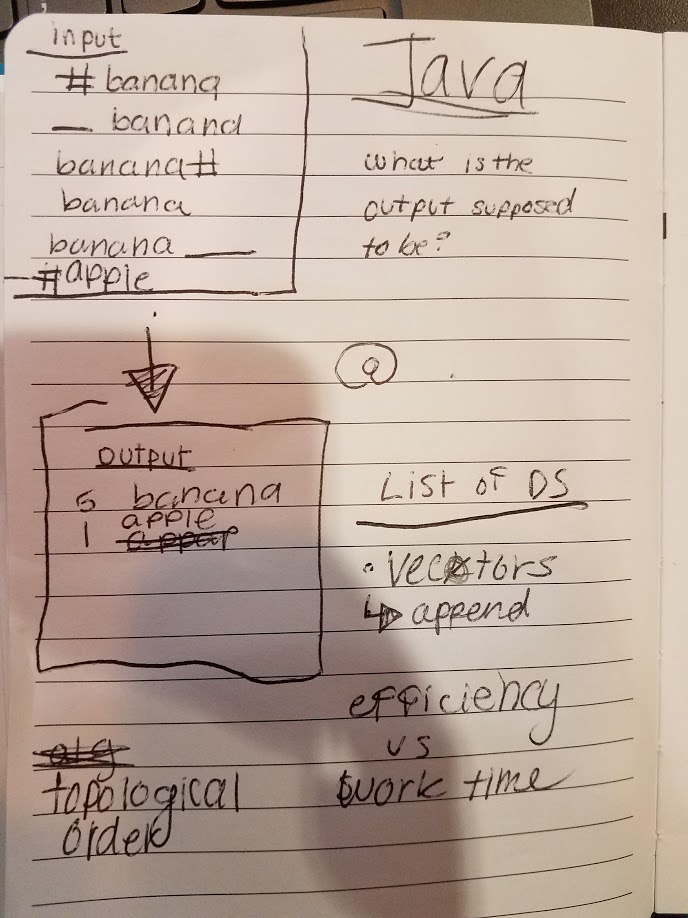 Input
# banana
_ banana
banana#
banana
banana __
#apple
Java
What is the
output supposed
to be?
a
OUTPUT
5 banana
1 apple
List of DS
• Vectors
↳ append
efficiency
vs
work time
topological
order